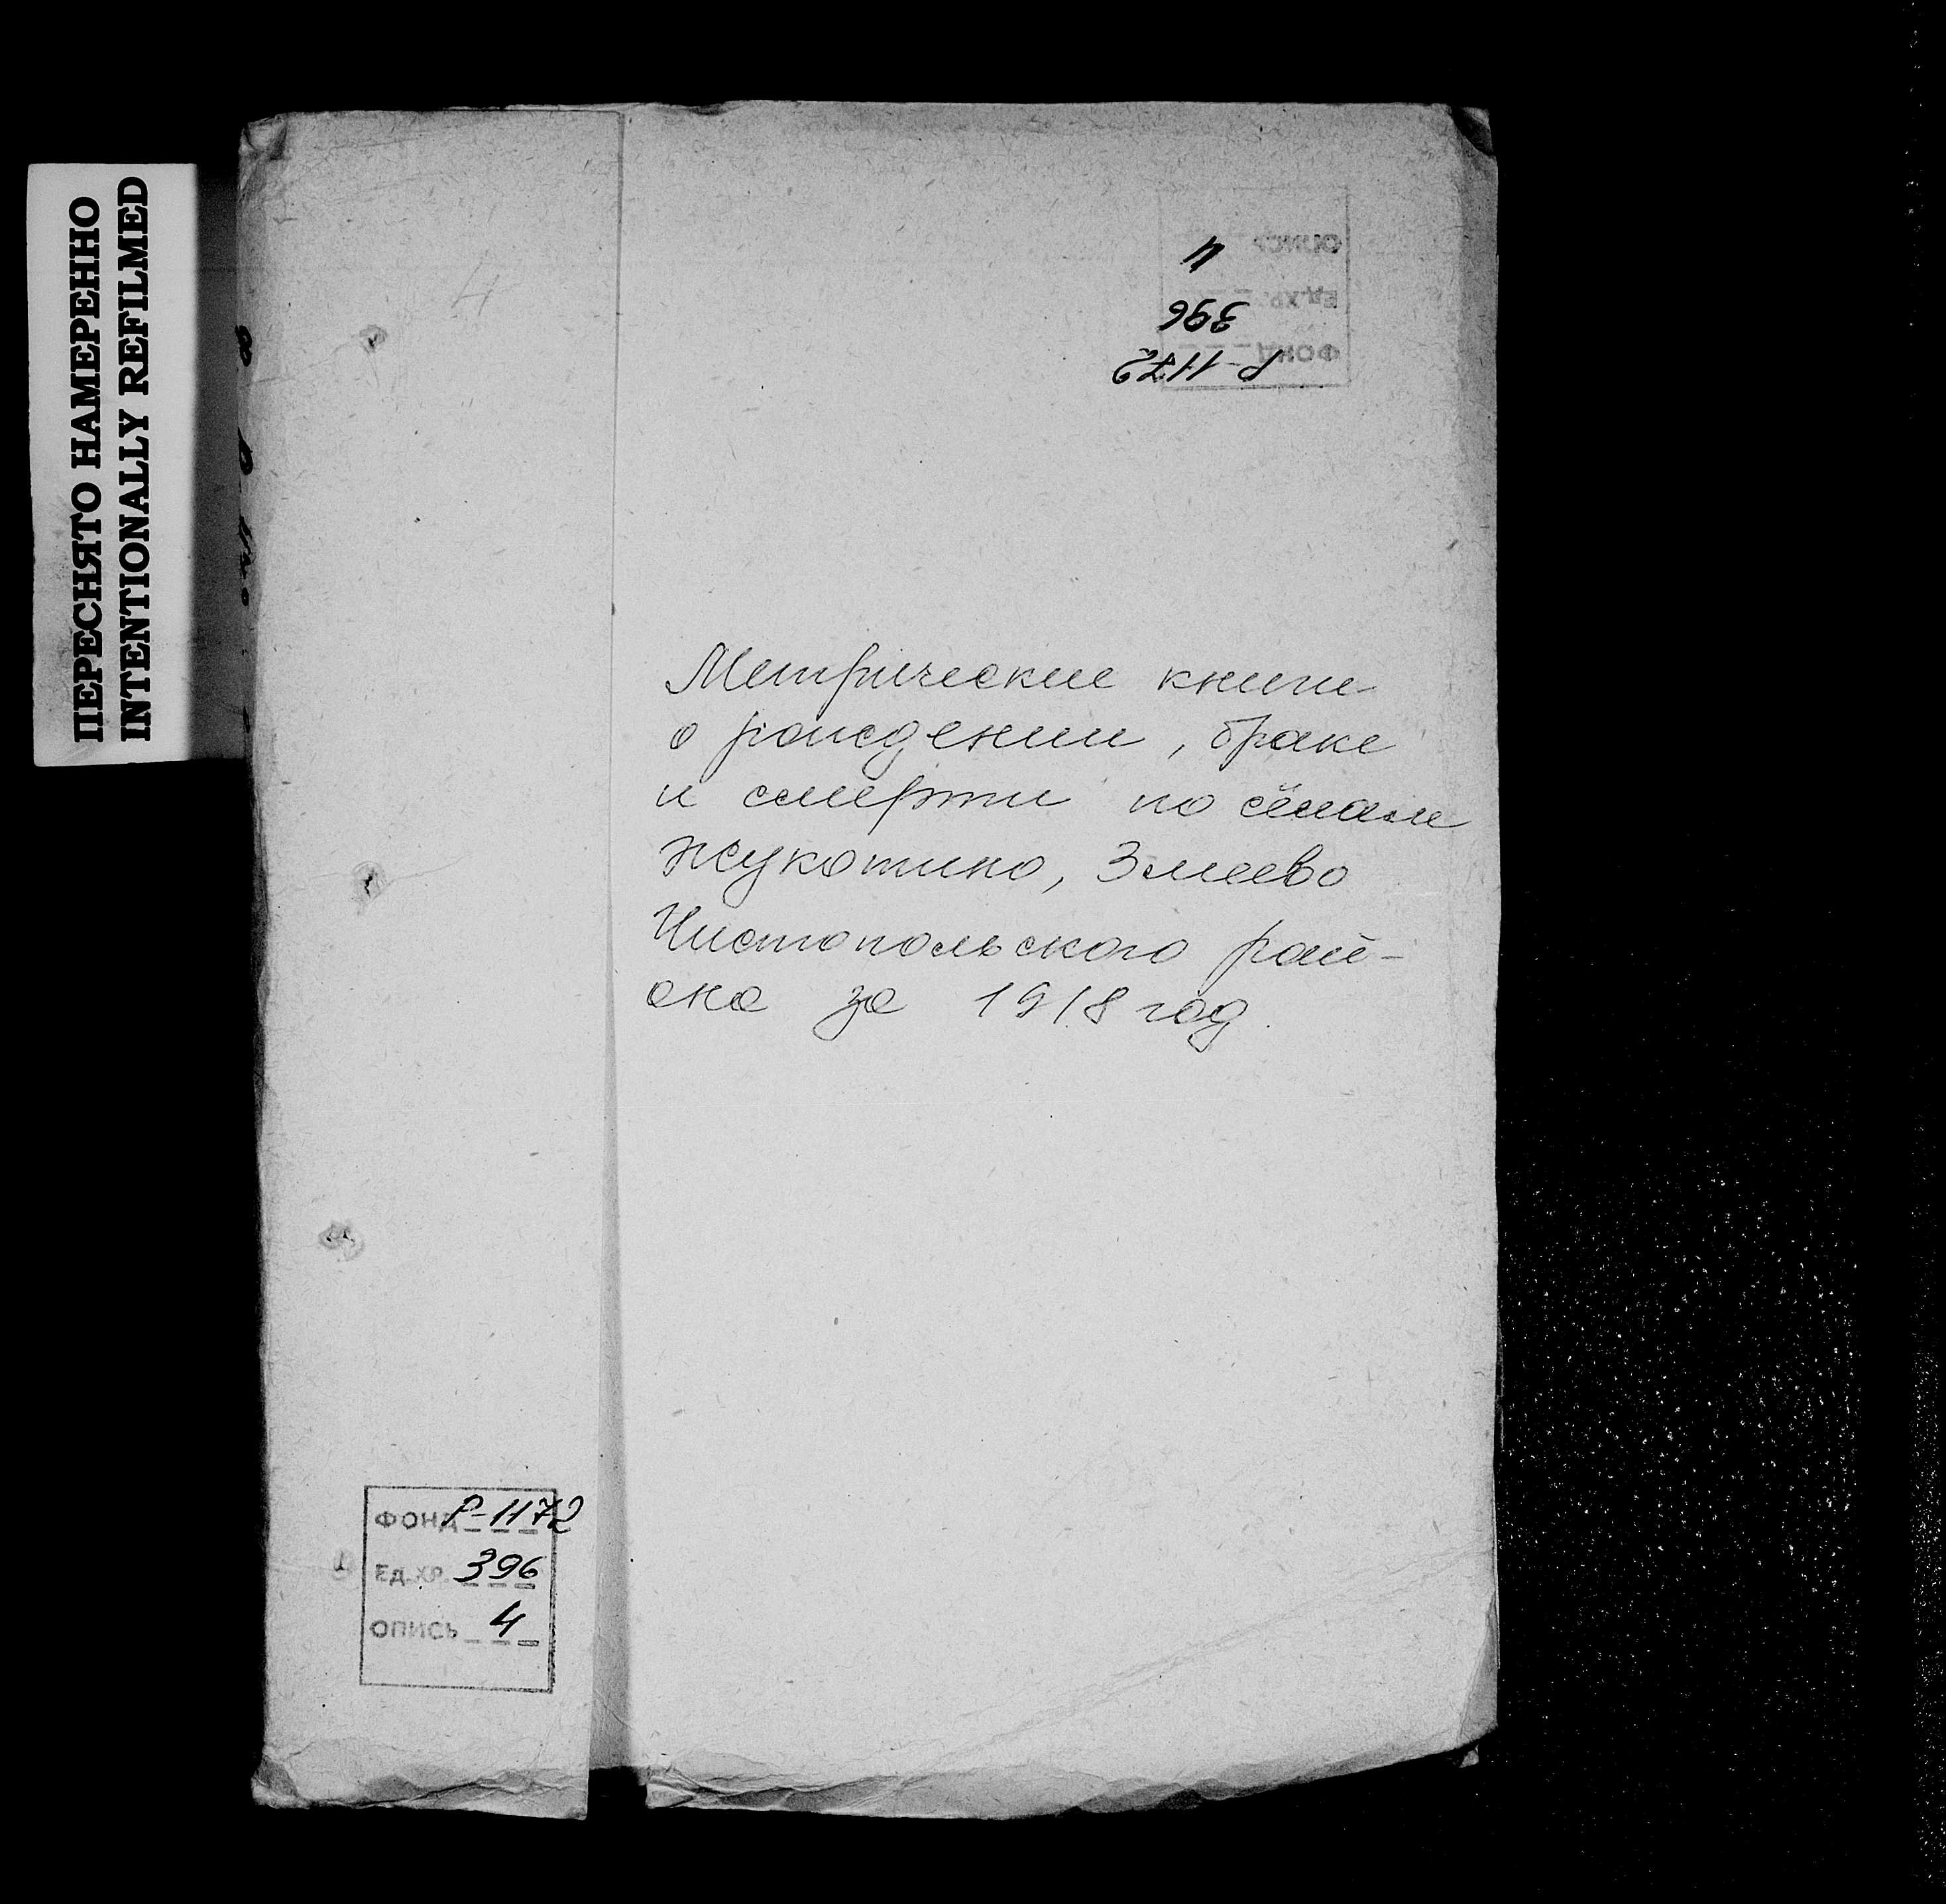 ПЕРЕСНЯТО НАМЕРЕННО
INTENTIONALLY REFILMED
4
ОПИСЬ 4
ЕД.ХР. 396
ФОНД Р-1172
Метрические книги
о рождении, браке
и смерти по сёлам
Жукотино, Змеево
Чистопольского рай-
она за 1918 год.
ФОНД Р-1172
ЕД.ХР. 396
ОПИСЬ 4